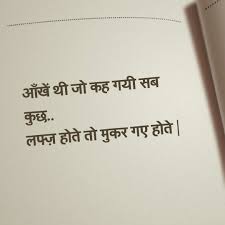 आँखें थी जो कह गयी सब
कुछ..
लफ्ज़ होते तो मुकर गए होते |